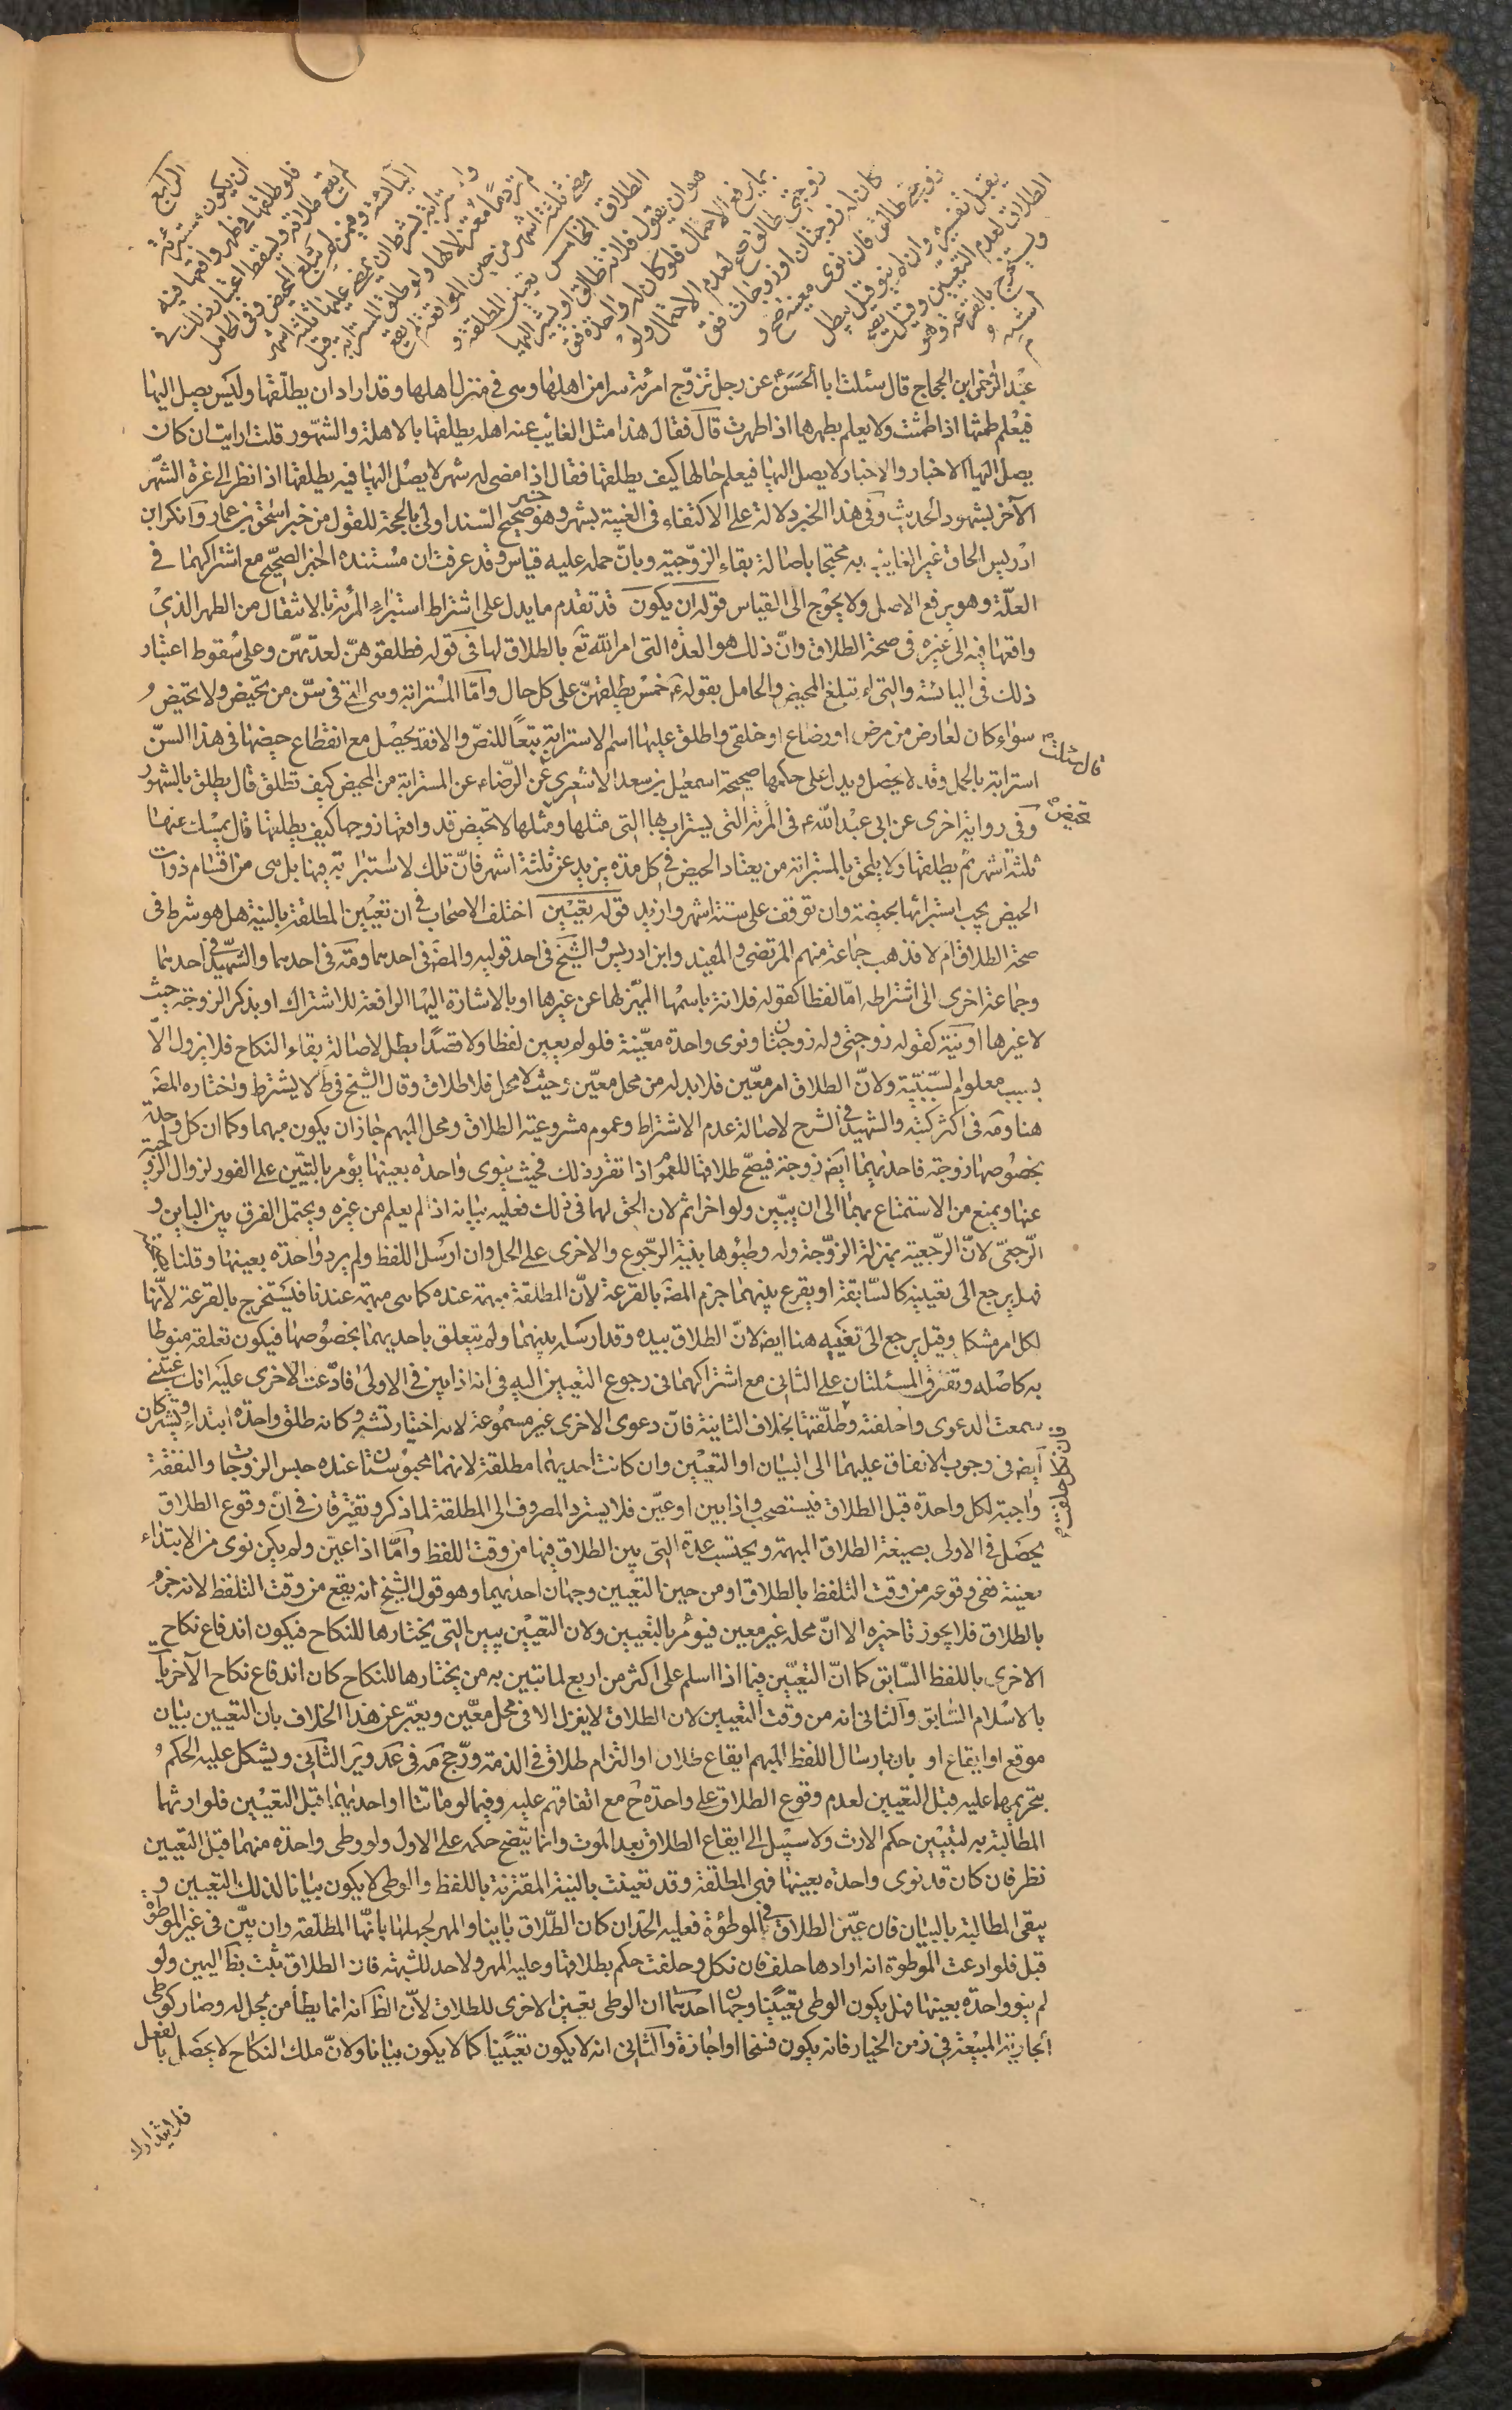 الرابع
ان يكون مستبرئة
فلو طلقها في طهر واقعها فيه
لم يقع طلاقه ويسقط اعتبار ذلك في
اليائسة وفيمن لم تبلغ المحيض وفي الحامل
والمسترابة بشرط ان يمضي عليها ثلثة اشهر
لم تر دما معتزلا لها ولو طلق المسترابة قبل
مضي ثلثة اشهر من حين المواقعة لم يقع
الطلاق الخامس تعيين المطلقة و
هو ان يقول فلانة طالق او يشير اليها
بما يرفع الاحتمال فلو كان له واحدة فق
زوجتي طالق صح لعدم الاحتمال ولو
كان له زوجتان او زوجات فق
زوجتي طالق فان نوى معينة صح و
يقبل تفسيره وان لم ينو قيل يبطل
الطلاق لعدم التعيين وقيل يصح
ويستخرج بالقرعة وهو
اشبه
عبد الرحمن ابن الحجاج قال سئلت ابا الحسن ع عن رجل تزوج امرئة سرا من اهلها وهى في منزل اهلها وقد اراد ان يطلّقها وليس يصل اليها
فيعلم طمثها اذا طمثت ولا يعلم بطهرها اذا طهرت قال فقال هذا مثل الغائب عنه اهله يطلقها بالاهلة والشهور قلت ارايت ان كان
يصل اليها الاخبار والاخبار لا يصل اليها فيعلم حالها كيف يطلقها فقال اذا مضى له شهر لا يصل اليها فيه يطلقها اذا نظر الى غرة الشهر
الآخر بشهود الحديث وفى هذا الخبر دلالة على الاكتفاء في الغيبة بشهر وهو خبر صحيح السند اولى بالحجة للقول من خبر اسحق بن عمار وانكر ابن
ادريس الحاق غير الغايب به محتجا باصالة بقاء الزوجية وبان حمله عليه قياس وقد عرفت ان مستنده الخبر الصحيح مع اشتراكهما في
العلّة وهو يرفع الاصل ولا يحوج الى القياس قوله ان يكون قد تقدم ما يدل على اشتراط استبراء المرئة بالانتقال من الطهر الذي
واقعها فيه الى غيره في صحة الطلاق وان ذلك هو العدة التى امر الله تع بالطلاق لها في قوله فطلقوهنّ لعدتهنّ وعلى سقوط اعتبار
ذلك في اليائسة والتى لم تبلغ المحيض والحامل بقوله ع خمس يطلقهنّ على كل حال وامّا المسترابة وهى التى في سنّ من تحيض ولا تحيض
سواء كان لعارض من مرض او رضاع او خلقى واطلق عليها اسم الاسترابة تبعا للنصّ والا فقد يحصل مع انقطاع حيضها في هذا السنّ
استرابة بالحمل وقد لا يحصل ويدل على حكمها صحيحة اسمعيل بن سعد الاشعرى عن الرضا ع عن المسترابة من المحيض كيف تطلق قال يطلق بالشهور
وفى رواية اخرى عن ابى عبد الله ع في المرئة التى يستراب بها التى مثلها ومثلها لا تحيض قد واقعها زوجها كيف يطلقها قال يمسك عنها
ثلثة اشهر ثم يطلقها ولا يلحق بالمسترابة من يعتاد الحيض في كل مدة يزيد عن ثلثة اشهر فانّ تلك لا استرابة فيها بل هى من اقسام ذوات
الحيض يجب استبرائها بحيضة وان توقفت على ستة اشهر وازيد قوله تعيين اختلف الاصحاب في ان تعيين المطلقة بالنية هل هو شرط في
صحة الطلاق ام لا فذهب جماعة منهم المرتضى والمفيد وابن ادريس والشيخ في احد قوليه والمص في احدهما ومه في احدهما والشهيد في احدهما
وجماعة اخرى الى اشتراطه امّا لفظا كقوله فلانة باسمها المميّز لها عن غيرها او بالاشارة اليها الرافعة للاشتراك او بذكر الزوجة حيث
لا غيرها او نيّة كقوله زوجتى وله زوجتان ونوى واحدة معيّنة فلو لم يعين لفظا ولا قصدًا بطل لاصالة بقاء النكاح فلا يزول الّا
بسبب معلوم السّببيّة ولانّ الطلاق امر معيّن فلا بد له من محل معيّن وحيث لا محل فلا طلاق وقال الشيخ في ط لا يشترط واختاره المص
هنا ومه في اكثر كتبه والشهيد في الشرح لاصالة عدم الاشتراط وعموم مشروعية الطلاق ومحل المبهم جاز ان يكون مبهما وكما ان كل واحدة
بخصوصها زوجة فاحديهما ايض زوجة فيصحّ طلاقها للعموم اذا تقرر ذلك فحيث ينوى واحدة بعينها يؤمر بالتبيّن على الفور لزوال الزوجية
عنها ويمنع من الاستمتاع بهما الى ان يبيّن ولو اخر اثم لان الحق لهما في ذلك فعليه بيانه اذ لم يعلم من غيره ويحتمل الفرق بين الباين و
الرّجعىّ لانّ الرّجعية بمنزلة الزوّجة وله وطيؤها بنية الرّجوع والاخرى على الحل وان ارسل اللفظ ولم يرد واحدة بعينها وقلنا بصحته
فهل يرجع الى تعيينه كالسّابقة او يقرع بينهما جزم المص بالقرعة لانّ المطلقة مبهمة عنده كما هى مبهمة عندنا فيستخرج بالقرعة لانّها
لكل امر مشكل وقيل يرجع الى تعيينه هنا ايض لانّ الطلاق بيده وقد ارسله بينهما ولم يتعلق باحديهما بخصوصها فيكون تعلقه منوطا
به كاصله وتفترق المسئلتان على الثانى مع اشتراكهما في رجوع التعيين اليه في انه اذا بين في الاولى فادّعت الاخرى عليه انك عنيتنى
سمعت الدعوى واحلفته وطلّقتها بخلاف الثانية فانّ دعوى الاخرى غير مسموعة لانه اختيار تشهّ وكانه طلق واحدة ابتداء ويشتركان
ايض في وجوب الانفاق عليهما الى البيان او التعيين وان كانت احديهما مطلقة لانهما محبوستان عنده حبس الزوجات والنفقة
واجبة لكل واحدة قبل الطلاق فيستصحب واذا بين او عيّن فلا يسترد المصروف الى المطلقة لما ذكر ويفترقان في انّ وقوع الطلاق
يحصل في الاولى بصيغة الطلاق المبهمة ويحتسب عدة التى بين الطلاق فيها من وقت اللفظ وامّا اذا عيّن ولم يكن نوى من الابتداء
معينة ففى وقوعه من وقت التلفظ بالطلاق او من حين التعيين وجهان احدهما وهو قول الشيخ انه يقع من وقت التلفظ لانه جزم
بالطلاق فلا يجوز تاخيره الا انّ محله غير معين فيؤمر بالتعيين ولان التعيين يبين التى يختارها للنكاح فيكون اندفاع نكاح
الاخرى باللفظ السّابق كما انّ التعيّين فيما اذا اسلم على اكثر من اربع لما تبين به من يختارها للنكاح كان اندفاع نكاح الآخريات
بالاسلام السّابق والثانى انه من وقت التعيين لان الطلاق لا ينزل الا في محل معيّن ويعبّر عن هذا الخلاف بان التعيين بيان
موقع او ايقاع او بان ارسال اللفظ المبهم ايقاع طلاق او التزام طلاق في الذمة ورجّح مه في عد ويَر الثانى ويشكل عليه الحكم
بتحريمهما عليه قبل التعيين لعدم وقوع الطلاق على واحدة ح مع اتفاقهم عليه وفيما لو ماتتا او احديهما قبل التعيين فلوارثهما
المطالبة به لتبيين حكم الارث ولا سبيل الى ايقاع الطلاق بعد الموت وانما يتضح حكمه على الاول ولو وطى واحدة منهما قبل التعيين
نظر فان كان قد نوى واحدة بعينها فهى المطلقة وقد تعينت بالنية المقترنة باللفظ والوطى لا يكون بيانا لذلك التعيين و
يبقى المطالبة بالبيان فان عيّن الطلاق في الموطؤة فعليه الحدّ ان كان الطّلاق باينا والمهر لجهلها بانّها المطلقه وان بيّن في غير الموطؤة
قبل فلو ادعت الموطوة انه ارادها حلف فان نكل وحلفت حكم بطلاقها وعليه المهر ولا حد للشبهة فان الطلاق ثبت بظ اليمين ولو
لم ينو واحدة بعينها فهل يكون الوطى تعيينا وجهان احدهما ان الوطى يعين الاخرى للطلاق لانّ الظ انه انما يطأ من يحل له وصار كوطى
الجارية المبيعة في زمن الخيار فانه يكون فسخا او اجازة والثانى انه لا يكون تعيينا كما لا يكون بيانا ولانّ ملك النكاح لا يحصل بالفعل
قال سئلته
تحيض
فان نكل حلفت
فلا يتدارك